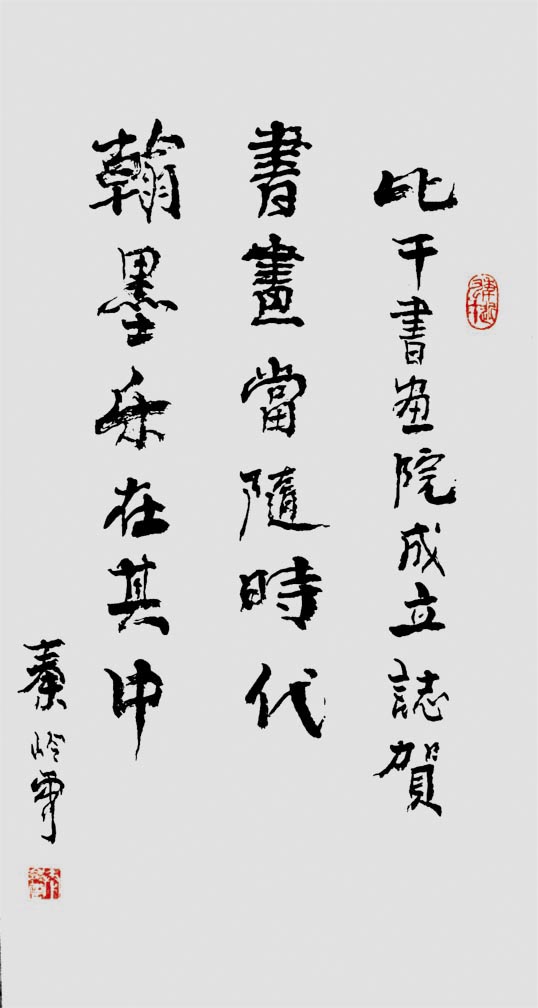 比干書画院成立誌賀
書畫當隨時代
翰墨乐在其中
秦岭雲